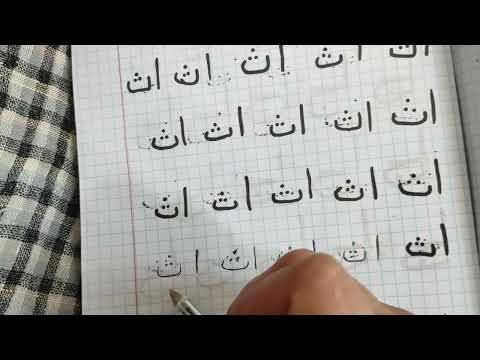 اث اث اث اث اث
اث اث اث اث اث
اث اث اث اث اث
اث اث اث اث اث